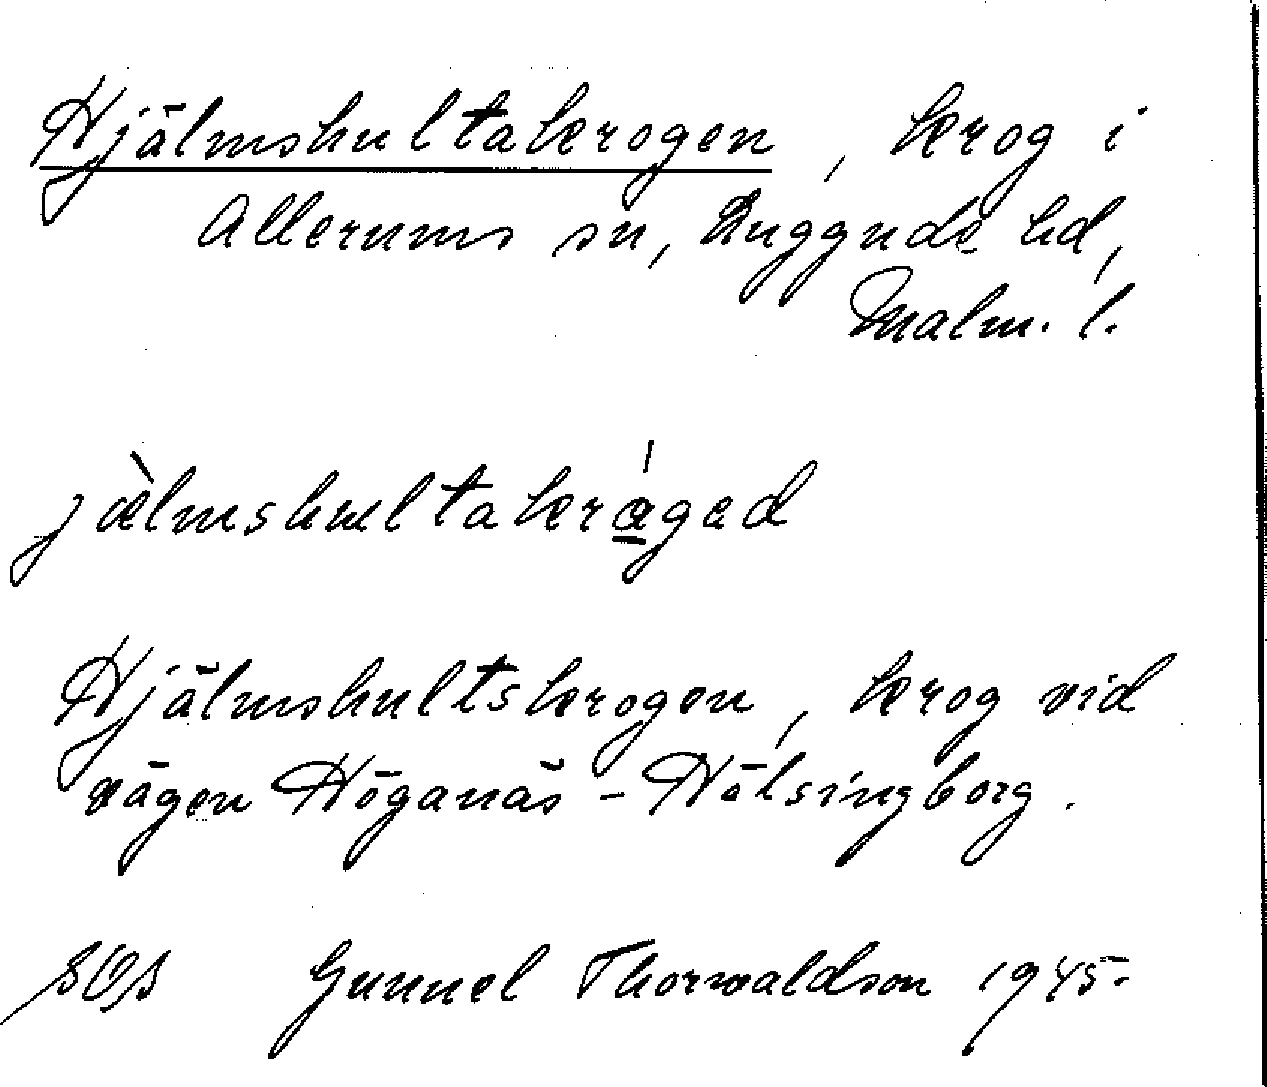 Hjälmshultakrogen, krog i
Allerums sn, Luggude hd,
Malm. l.
Hjälmshultskrogen, krog vid
vägen Höganäs - Hälsingborg.
SOS Gunnel Thorwaldson 1945.